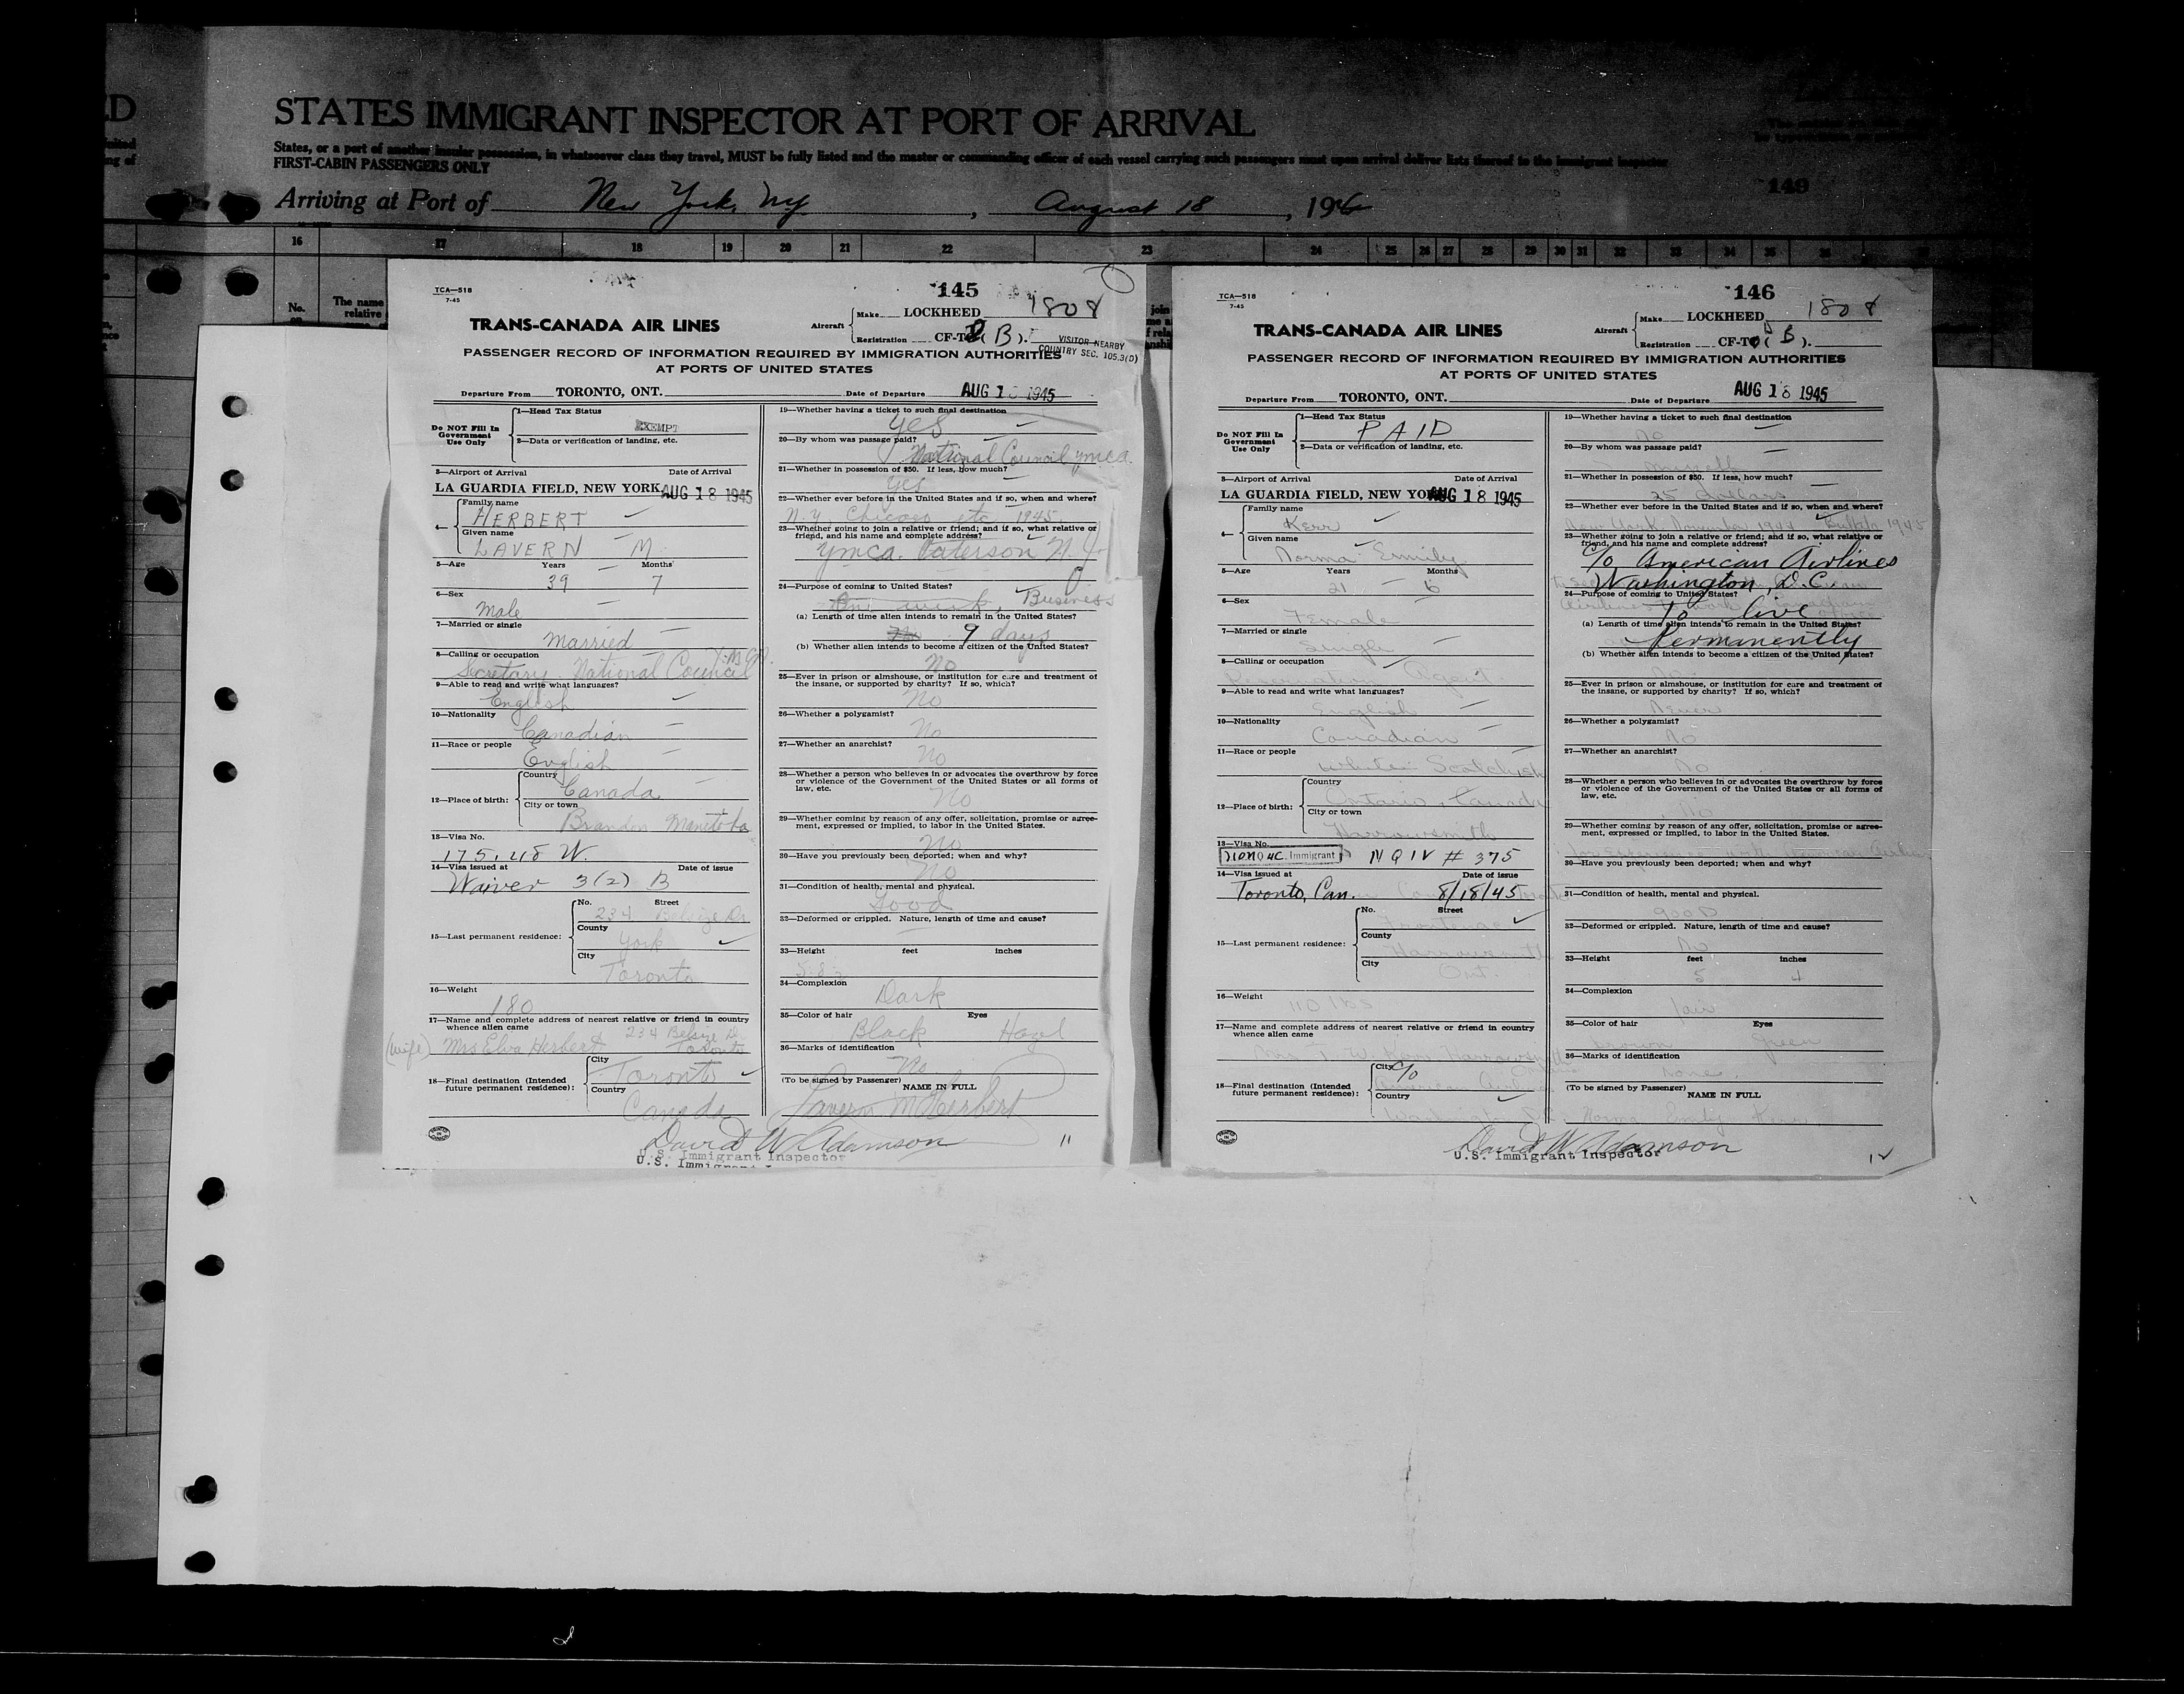 STATES IMMIGRANT INSPECTOR AT PORT OF ARRIVAL
States, or a part of another insular possession, in whatsoever class they travel, MUST be fully listed and the master or commanding officer of each vessel carrying such passengers must upon arrival deliver lists thereof to the immigrant inspector
FIRST-CABIN PASSENGERS ONLY
149
Arriving at Port of New York, NY, August 18, 194
16 17 18 19 20 21 22 23 24 25 26 27 28 29 30 31 32 33 34 35
No.
The name
relative
TCA—518
7-45
145
1808
TRANS-CANADA AIR LINES
Aircraft
Make LOCKHEED
Registration CF-T (B).
VISITOR NEARBY
COUNTRY SEC. 105.3(D)
PASSENGER RECORD OF INFORMATION REQUIRED BY IMMIGRATION AUTHORITIES
AT PORTS OF UNITED STATES
Departure From TORONTO, ONT. Date of Departure AUG 18 1945
Do NOT Fill In Government Use Only
1—Head Tax Status
EXEMPT
2—Data or verification of landing, etc.
3—Airport of Arrival Date of Arrival
LA GUARDIA FIELD, NEW YORK AUG 18 1945
4—
Family name
HERBERT
Given name
LAVERN M
5—Age Years Months
39 7
6—Sex
Male
7—Married or single
Married
8—Calling or occupation
Secretary National Council Y.M.C.A.
9—Able to read and write what languages?
English
10—Nationality
Canadian
11—Race or people
English
12—Place of birth:
Country
Canada
City or town
Brandon Manitoba
13—Visa No.
175.48 W.
14—Visa issued at Date of issue
Waiver 3(2) B
15—Last permanent residence:
No. Street
234 Belsize Dr
County
York
City
Toronto
16—Weight
180
17—Name and complete address of nearest relative or friend in country
whence alien came
234 Belsize Dr
(wife) Mrs Elva Herbert Toronto
18—Final destination (Intended
future permanent residence):
City
Toronto
Country
Canada
19—Whether having a ticket to such final destination
Yes
20—By whom was passage paid?
National Council YMCA
21—Whether in possession of $50. If less, how much?
Yes
22—Whether ever before in the United States and if so, when and where?
N.Y. Chicago etc 1945
23—Whether going to join a relative or friend; and if so, what relative or
friend, and his name and complete address?
YMCA. Paterson N.J.
24—Purpose of coming to United States?
One week, Business
(a) Length of time alien intends to remain in the United States?
9 days
(b) Whether alien intends to become a citizen of the United States?
No
25—Ever in prison or almshouse, or institution for care and treatment of
the insane, or supported by charity? If so, which?
No
26—Whether a polygamist?
No
27—Whether an anarchist?
No
28—Whether a person who believes in or advocates the overthrow by force
or violence of the Government of the United States or all forms of
law, etc.
No
29—Whether coming by reason of any offer, solicitation, promise or agree-
ment, expressed or implied, to labor in the United States.
No
30—Have you previously been deported; when and why?
No
31—Condition of health, mental and physical.
Good
32—Deformed or crippled. Nature, length of time and cause?
33—Height feet inches
34—Complexion
Dark
35—Color of hair Eyes
Black Hazel
36—Marks of identification
No
(To be signed by Passenger) NAME IN FULL
Lavern M Herbert
David W Adamson
U.S. Immigrant Inspector
11
TCA—518
7-45
146
1808
TRANS-CANADA AIR LINES
Aircraft
Make LOCKHEED
Registration CF-T (B).
PASSENGER RECORD OF INFORMATION REQUIRED BY IMMIGRATION AUTHORITIES
AT PORTS OF UNITED STATES
Departure From TORONTO, ONT. Date of Departure AUG 18 1945
Do NOT Fill In Government Use Only
1—Head Tax Status
PAID
2—Data or verification of landing, etc.
3—Airport of Arrival Date of Arrival
LA GUARDIA FIELD, NEW YORK AUG 18 1945
4—
Family name
Kerr
Given name
Norma Emily
5—Age Years Months
21 6
6—Sex
Female
7—Married or single
Single
8—Calling or occupation
Reservation Agent
9—Able to read and write what languages?
English
10—Nationality
Canadian
11—Race or people
White
12—Place of birth:
Country
Ontario, Canada
City or town
Harrowsmith
13—Visa No.
Immigrant NQIV # 375
14—Visa issued at Date of issue
Toronto, Can. 8/18/45
15—Last permanent residence:
No. Street
County
Harrowsmith
City
Ont.
16—Weight
110 lbs
17—Name and complete address of nearest relative or friend in country
whence alien came
Kerr Harrowsmith
18—Final destination (Intended
future permanent residence):
City
c/o American Airlines
Country
Washington D.C.
19—Whether having a ticket to such final destination
No
20—By whom was passage paid?
myself
21—Whether in possession of $50. If less, how much?
25 dollars
22—Whether ever before in the United States and if so, when and where?
New York November 1944 Buffalo 1945
23—Whether going to join a relative or friend; and if so, what relative or
friend, and his name and complete address?
c/o American Airlines
Washington, D.C.
24—Purpose of coming to United States?
To live
(a) Length of time alien intends to remain in the United States?
Permanently
(b) Whether alien intends to become a citizen of the United States?
25—Ever in prison or almshouse, or institution for care and treatment of
the insane, or supported by charity? If so, which?
Never
26—Whether a polygamist?
No
27—Whether an anarchist?
No
28—Whether a person who believes in or advocates the overthrow by force
or violence of the Government of the United States or all forms of
law, etc.
No
29—Whether coming by reason of any offer, solicitation, promise or agree-
ment, expressed or implied, to labor in the United States.
30—Have you previously been deported; when and why?
31—Condition of health, mental and physical.
good
32—Deformed or crippled. Nature, length of time and cause?
No
33—Height feet inches
5 4
34—Complexion
fair
35—Color of hair Eyes
brown green
36—Marks of identification
None
(To be signed by Passenger) NAME IN FULL
Norma Emily Kerr
David W Adamson
U.S. Immigrant Inspector
12